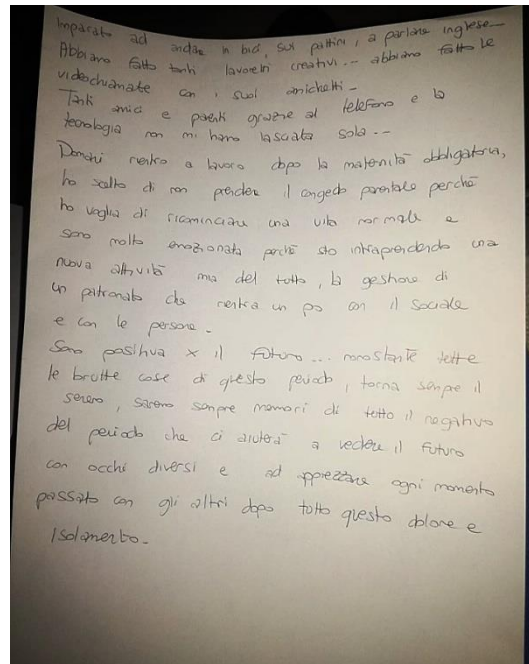 Imparato ad andare in bici, sui pattini, a parlare inglese -
Abbiamo fatto tanti lavoretti creativi -- abbiamo fatto le
videochiamate con i suoi amichetti -
Tanti amici e parenti grazie al telefono e la
tecnologia non mi hanno lasciata sola --
Domani rientro a lavoro dopo la maternità obbligatoria,
ho scelto di non prendere il congedo parentale perchè
ho voglia di ricominciare una vita normale e
sono molto emozionata perchè sto intraprendendo una
nuova attività mia del tutto, la gestione di
un patronato che rientra un po con il sociale
e con le persone -
Sono positiva x il futuro ... nonostante tutte
le brutte cose di questo periodo, torna sempre il
sereno, saremo sempre memori di tutto il negativo
del periodo che ci aiuterà a vedere il futuro
con occhi diversi e ad apprezzare ogni momento
passato con gli altri dopo tutto questo dolore e
isolamento -